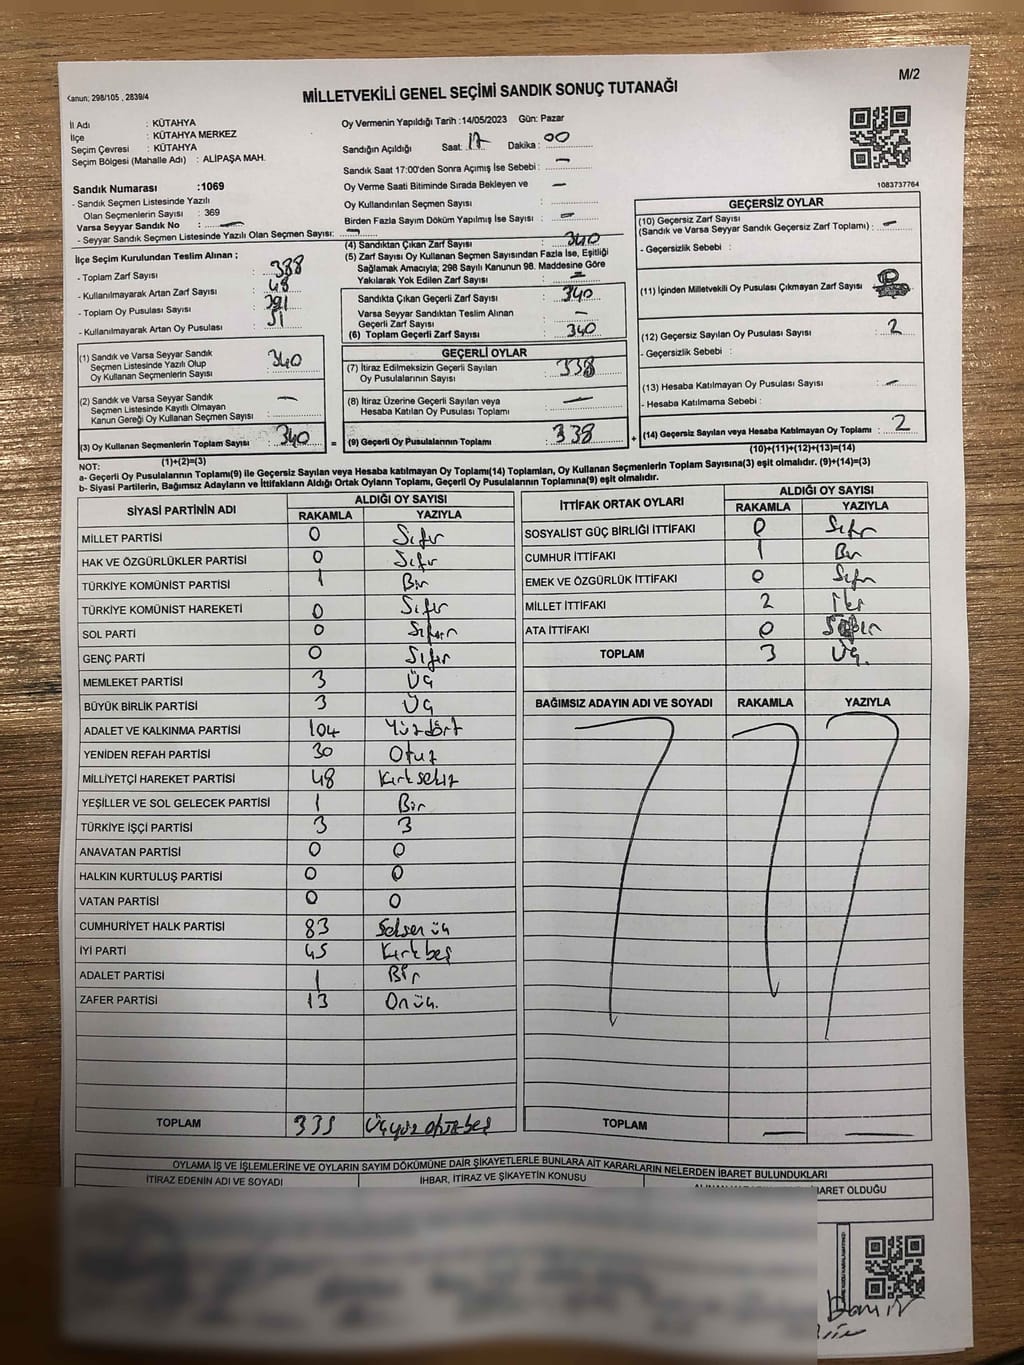 Kanun; 298/105 , 2839/4
M/2
MİLLETVEKİLİ GENEL SEÇİMİ SANDIK SONUÇ TUTANAĞI
İl Adı : KÜTAHYA
İlçe : KÜTAHYA MERKEZ
Seçim Çevresi : KÜTAHYA
Seçim Bölgesi (Mahalle Adı) : ALİPAŞA MAH.
Sandık Numarası :1069
- Sandık Seçmen Listesinde Yazılı
Olan Seçmenlerin Sayısı : 369
Varsa Seyyar Sandık No : —
- Seyyar Sandık Seçmen Listesinde Yazılı Olan Seçmen Sayısı: —
İlçe Seçim Kurulundan Teslim Alınan ;
- Toplam Zarf Sayısı : 388
- Kullanılmayarak Artan Zarf Sayısı : 48
- Toplam Oy Pusulası Sayısı : 391
- Kullanılmayarak Artan Oy Pusulası : 51
(1) Sandık ve Varsa Seyyar Sandık
Seçmen Listesinde Yazılı Olup
Oy Kullanan Seçmenlerin Sayısı : 340
(2) Sandık ve Varsa Seyyar Sandık
Seçmen Listesinde Kayıtlı Olmayan
Kanun Gereği Oy Kullanan Seçmen Sayısı : —
(3) Oy Kullanan Seçmenlerin Toplam Sayısı : 340
(1)+(2)=(3)
Oy Vermenin Yapıldığı Tarih :14/05/2023 Gün: Pazar
Sandığın Açıldığı Saat: 17 Dakika : 00
Sandık Saat 17:00'den Sonra Açımış İse Sebebi : —
Oy Verme Saati Bitiminde Sırada Bekleyen ve —
Oy Kullandırılan Seçmen Sayısı :
Birden Fazla Sayım Döküm Yapılmış İse Sayısı : —
(4) Sandıktan Çıkan Zarf Sayısı : 340
(5) Zarf Sayısı Oy Kullanan Seçmen Sayısından Fazla İse, Eşitliği
Sağlamak Amacıyla; 298 Sayılı Kanunun 98. Maddesine Göre
Yakılarak Yok Edilen Zarf Sayısı : —
Sandıkta Çıkan Geçerli Zarf Sayısı : 340
Varsa Seyyar Sandıktan Teslim Alınan
Geçerli Zarf Sayısı : —
(6) Toplam Geçerli Zarf Sayısı : 340
GEÇERLİ OYLAR
(7) İtiraz Edilmeksizin Geçerli Sayılan
Oy Pusulalarının Sayısı : 338
(8) İtiraz Üzerine Geçerli Sayılan veya
Hesaba Katılan Oy Pusulası Toplamı : —
= (9) Geçerli Oy Pusulalarının Toplamı : 338
1083737764
GEÇERSİZ OYLAR
(10) Geçersiz Zarf Sayısı
(Sandık ve Varsa Seyyar Sandık Geçersiz Zarf Toplamı) : —
- Geçersizlik Sebebi :
(11) İçinden Milletvekili Oy Pusulası Çıkmayan Zarf Sayısı :
(12) Geçersiz Sayılan Oy Pusulası Sayısı : 2
- Geçersizlik Sebebi :
(13) Hesaba Katılmayan Oy Pusulası Sayısı : —
- Hesaba Katılmama Sebebi :
+ (14) Geçersiz Sayılan veya Hesaba Katılmayan Oy Toplamı : 2
(10)+(11)+(12)+(13)=(14)
NOT:
a- Geçerli Oy Pusulalarının Toplamı(9) ile Geçersiz Sayılan veya Hesaba katılmayan Oy Toplamı(14) Toplamları, Oy Kullanan Seçmenlerin Toplam Sayısına(3) eşit olmalıdır. (9)+(14)=(3)
b- Siyasi Partilerin, Bağımsız Adayların ve İttifakların Aldığı Ortak Oyların Toplamı, Geçerli Oy Pusulalarının Toplamına(9) eşit olmalıdır.
SİYASİ PARTİNİN ADI ALDIĞI OY SAYISI
RAKAMLA YAZIYLA
MİLLET PARTİSİ 0 Sıfır
HAK VE ÖZGÜRLÜKLER PARTİSİ 0 Sıfır
TÜRKİYE KOMÜNİST PARTİSİ 1 Bir
TÜRKİYE KOMÜNİST HAREKETİ 0 Sıfır
SOL PARTİ 0
GENÇ PARTİ 0 Sıfır
MEMLEKET PARTİSİ 3 Üç
BÜYÜK BİRLİK PARTİSİ 3 Üç
ADALET VE KALKINMA PARTİSİ 104 Yüzdört
YENİDEN REFAH PARTİSİ 30 Otuz
MİLLİYETÇİ HAREKET PARTİSİ 48 Kırksekiz
YEŞİLLER VE SOL GELECEK PARTİSİ 1 Bir
TÜRKİYE İŞÇİ PARTİSİ 3 3
ANAVATAN PARTİSİ 0 0
HALKIN KURTULUŞ PARTİSİ 0 0
VATAN PARTİSİ 0 0
CUMHURİYET HALK PARTİSİ 83 Seksenüç
İYİ PARTİ 45 Kırkbeş
ADALET PARTİSİ 1 Bir
ZAFER PARTİSİ 13 Onüç.
TOPLAM 335 Üçyüzotuzbeş
İTTİFAK ORTAK OYLARI ALDIĞI OY SAYISI
RAKAMLA YAZIYLA
SOSYALİST GÜÇ BİRLİĞİ İTTİFAKI 0 Sıfır
CUMHUR İTTİFAKI 1 Bir
EMEK VE ÖZGÜRLÜK İTTİFAKI 0 Sıfır
MİLLET İTTİFAKI 2 İki
ATA İTTİFAKI 0
TOPLAM 3 Üç.
BAĞIMSIZ ADAYIN ADI VE SOYADI RAKAMLA YAZIYLA
TOPLAM — —
OYLAMA İŞ VE İŞLEMLERİNE VE OYLARIN SAYIM DÖKÜMÜNE DAİR ŞİKAYETLERLE BUNLARA AİT KARARLARIN NELERDEN İBARET BULUNDUKLARI
İTİRAZ EDENİN ADI VE SOYADI İHBAR, İTİRAZ VE ŞİKAYETİN KONUSU
İBARET OLDUĞU